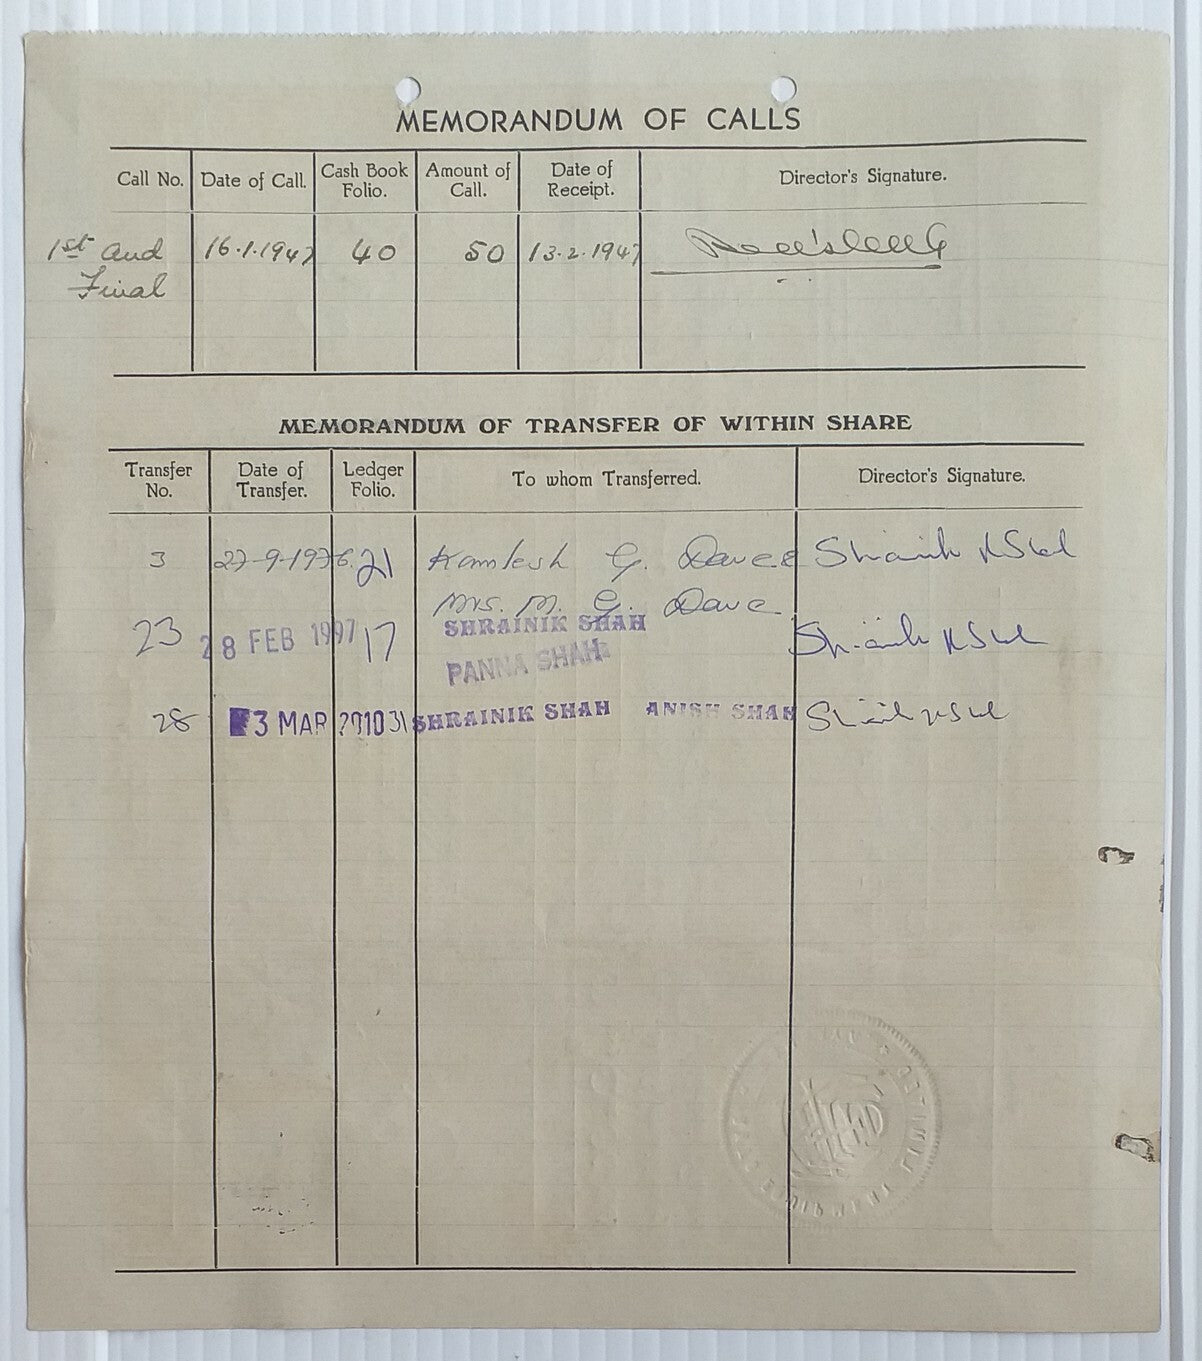 MEMORANDUM OF CALLS
Call No. Date of Call. Cash Book Folio. Amount of Call. Date of Receipt. Director's Signature.
1st and Final 16.1.1947 40 50 13.2.1947
MEMORANDUM OF TRANSFER OF WITHIN SHARE
Transfer No. Date of Transfer. Ledger Folio. To whom Transferred. Director's Signature.
3 27-9-1976. 21 Kamlesh G. Dave &
Mrs. M. G. Dave
23 28 FEB 1997 17 SHRAINIK SHAH
PANNA SHAH
28 3 MAR 2010 31 SHRAINIK SHAH ANISH SHAH